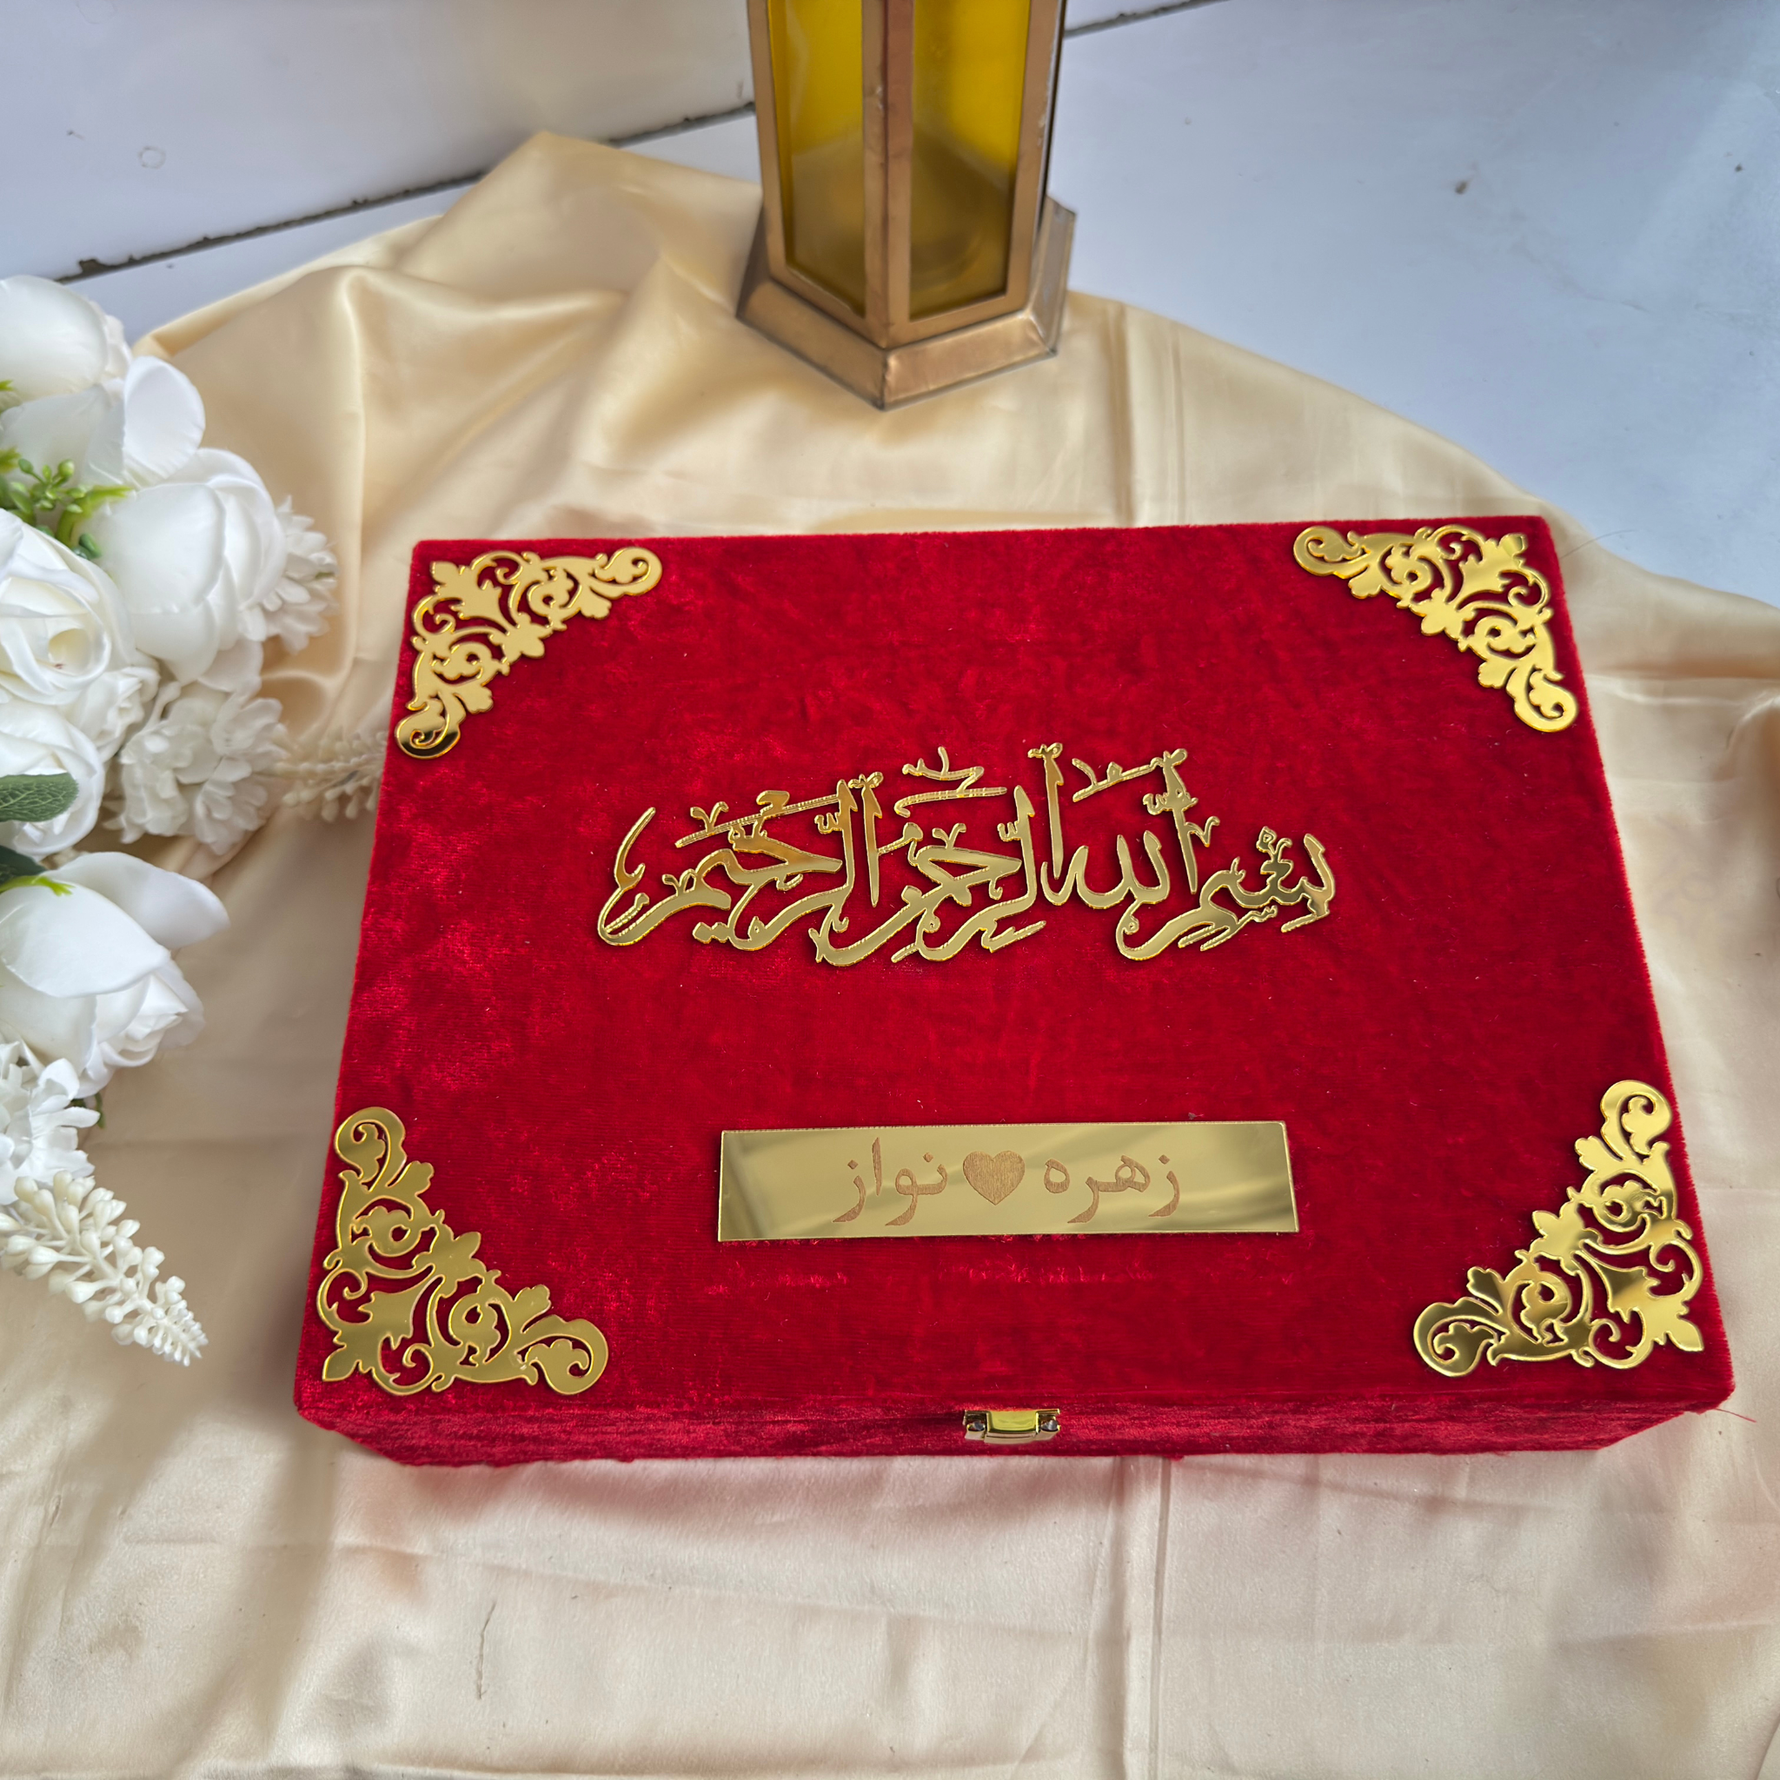 بسم الله الرحمن الرحيم
زهره ♥ نواز